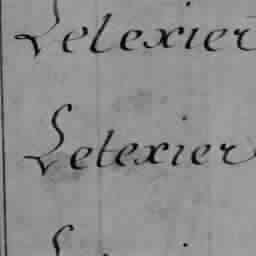 Lelexier
Letexier